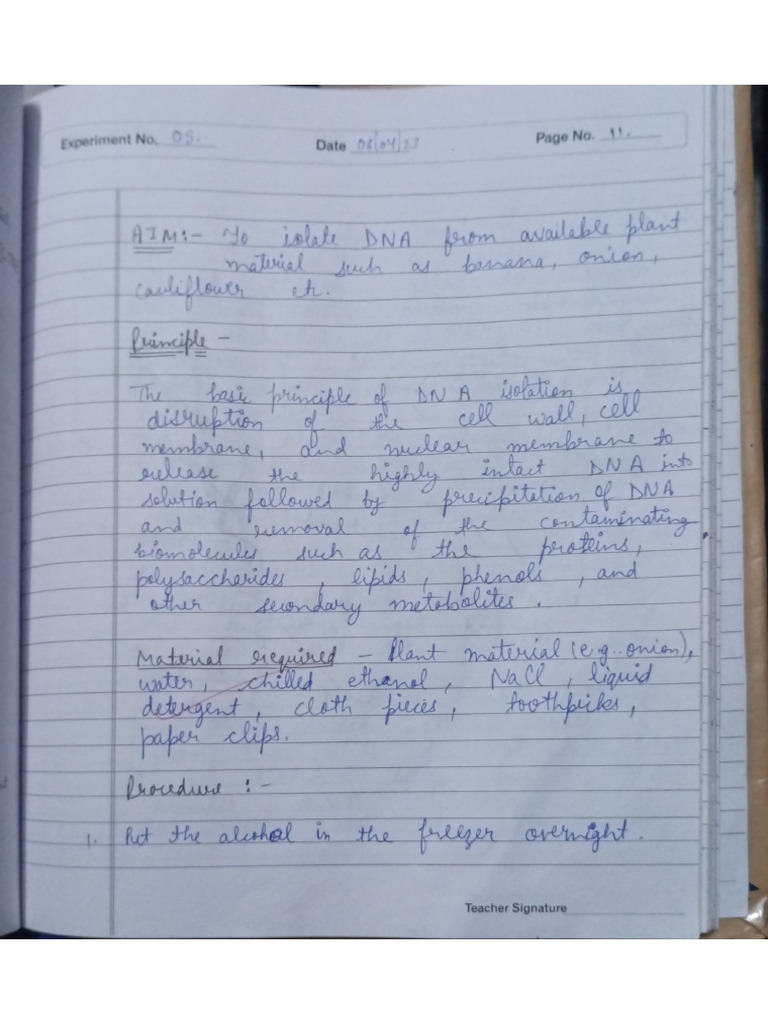 Experiment No. 05.
Date 06/04/23
Page No. 11.
AIM:- To isolate DNA from available plant
material such as banana, onion,
cauliflower etc.
Principle -
The basic principle of DNA isolation is
disruption of the cell wall, cell
membrane, and nuclear membrane to
release the highly intact DNA into
solution followed by precipitation of DNA
and removal of the contaminating
biomolecules such as the proteins,
polysaccharides, lipids, phenols, and
other secondary metabolites.
Material required - Plant material (e.g. onion),
water, chilled ethanol, NaCl, liquid
detergent, cloth pieces, toothpicks,
paper clips.
Procedure :-
1. Put the alcohol in the freezer overnight.
Teacher Signature